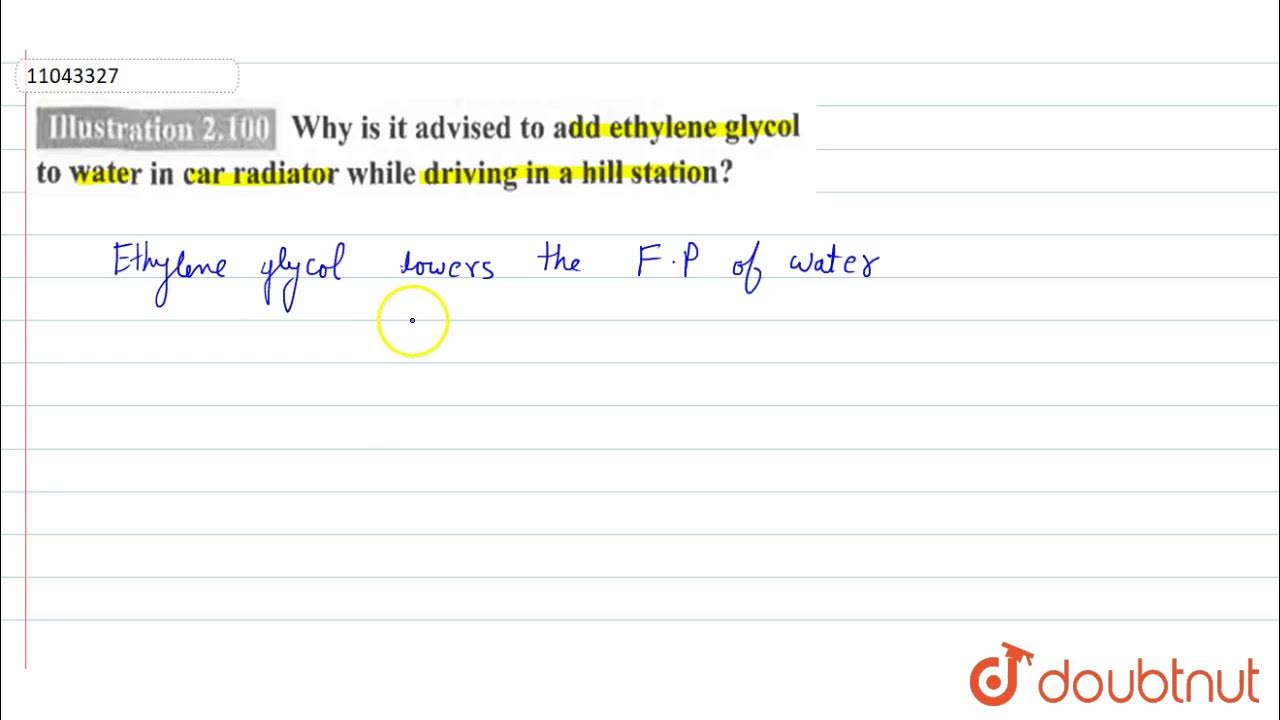 11043327
Illustration 2.100 Why is it advised to add ethylene glycol
to water in car radiator while driving in a hill station?
Ethylene glycol lowers the F.P of water
doubtnut